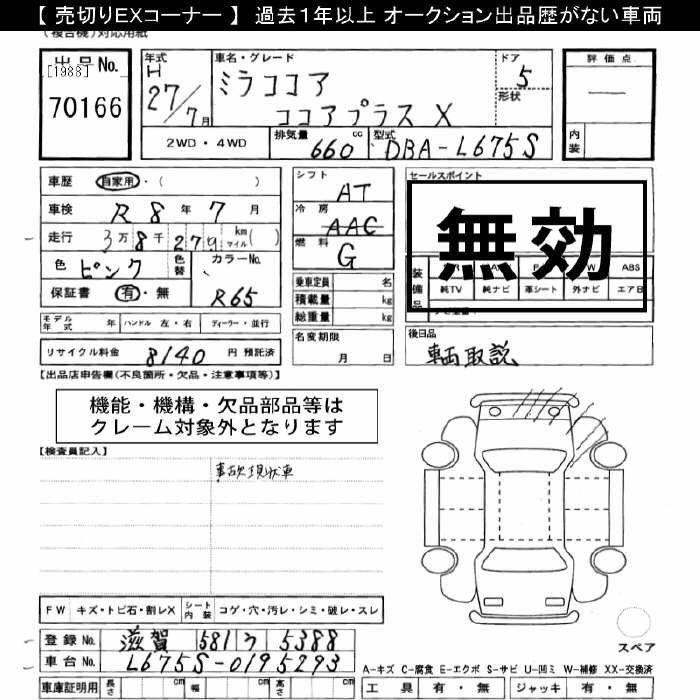 【 売切りEXコーナー 】 過去1年以上 オークション出品歴がない車両
(複合機)対応用紙
出品 No.
[1988]
70166
年式
H
27/7月
車名・グレード
ミラココア
ココアプラス X
ドア
5
形状
評価点
—
内装
2WD・4WD
排気量
660
cc
型式
DBA-L675S
車歴 自家用・( )
車検 R 8年 7月
走行 3万 8千 279 km マイル( )
色 ピンク
色替
カラーNo.
R65
保証書 有・無
モデル年式 年 ハンドル 左・右 ディーラー・並行
リサイクル料金 8140 円 預託済
シフト
AT
冷房
AAC
燃料
G
乗車定員 名
積載量 kg
総重量 kg
名変期限
月 日
セールスポイント
無効
装備品
ABS
純TV 純ナビ 革シート 外ナビ エアB
後日品
車両取説
【出品店申告欄(不良箇所・欠品・注意事項等)】
機能・機構・欠品部品等は
クレーム対象外となります
【検査員記入】
事故現状車
FW キズ・トビ石・割レX
シート内装 コゲ・穴・汚レ・シミ・破レ・スレ
登録 No. 滋賀 581 ワ 5388
車台 No. L675S-0195293
車庫証明用 長さ cm 幅 cm 高さ cm
スペア
A-キズ C-腐食 E-エクボ S-サビ U-凹ミ W-補修 XX-交換済
工具 有・無 ジャッキ 有・無